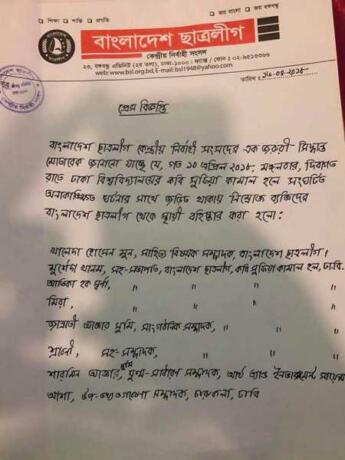 • শিক্ষা • শান্তি • প্রগতি
• জয় বাংলা • জয় বঙ্গবন্ধু
বাংলাদেশ ছাত্রলীগ
কেন্দ্রীয় নির্বাহী সংসদ
২৩, বঙ্গবন্ধু এভিনিউ (২য় তলা), ঢাকা-১০০০
web: www.bsl.org.bd, E-mail: bsl1948@yahoo.com
তারিখ
প্রেস বিজ্ঞপ্তি
বাংলাদেশ ছাত্রলীগ কেন্দ্রীয় নির্বাহী সংসদের এক জরুরী সিদ্ধান্ত
মোতাবেক জানানো যাচ্ছে যে, গত ১০ এপ্রিল ২০১৮, মঙ্গলবার, দিবাগত
রাতে ঢাকা বিশ্ববিদ্যালয়ের কবি সুফিয়া কামাল হলে সংঘটিত
অনাকাঙ্ক্ষিত ঘটনার সাথে জড়িত থাকায় নিম্নোক্ত ব্যক্তিদের
বাংলাদেশ ছাত্রলীগ থেকে স্থায়ী বহিষ্কার করা হলো:
খালেদা হোসেন মুন, সাহিত্য বিষয়ক সম্পাদক, বাংলাদেশ ছাত্রলীগ।
মুর্শেদা খানম, সহ-সভাপতি, বাংলাদেশ ছাত্রলীগ, কবি সুফিয়া কামাল হল, ঢাবি.
আতিকা হক স্বর্ণা, " " "
মিরা, " " "
জান্নাতী আক্তার সুমি, সাংগঠনিক সম্পাদক, " " "
শ্রাবণী, সহ-সম্পাদক, " " "
শারমিন আক্তার, সুমি যুগ্ম-সাধারণ সম্পাদক, আর্থ এ্যান্ড ইনভায়রনমেন্ট
আশা, উপ- সম্পাদক, চারুকলা, ঢাবি